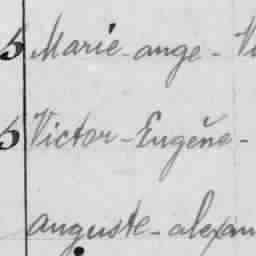 5 Marie-ange-
5 Victor-Eugène-
auguste-alexan